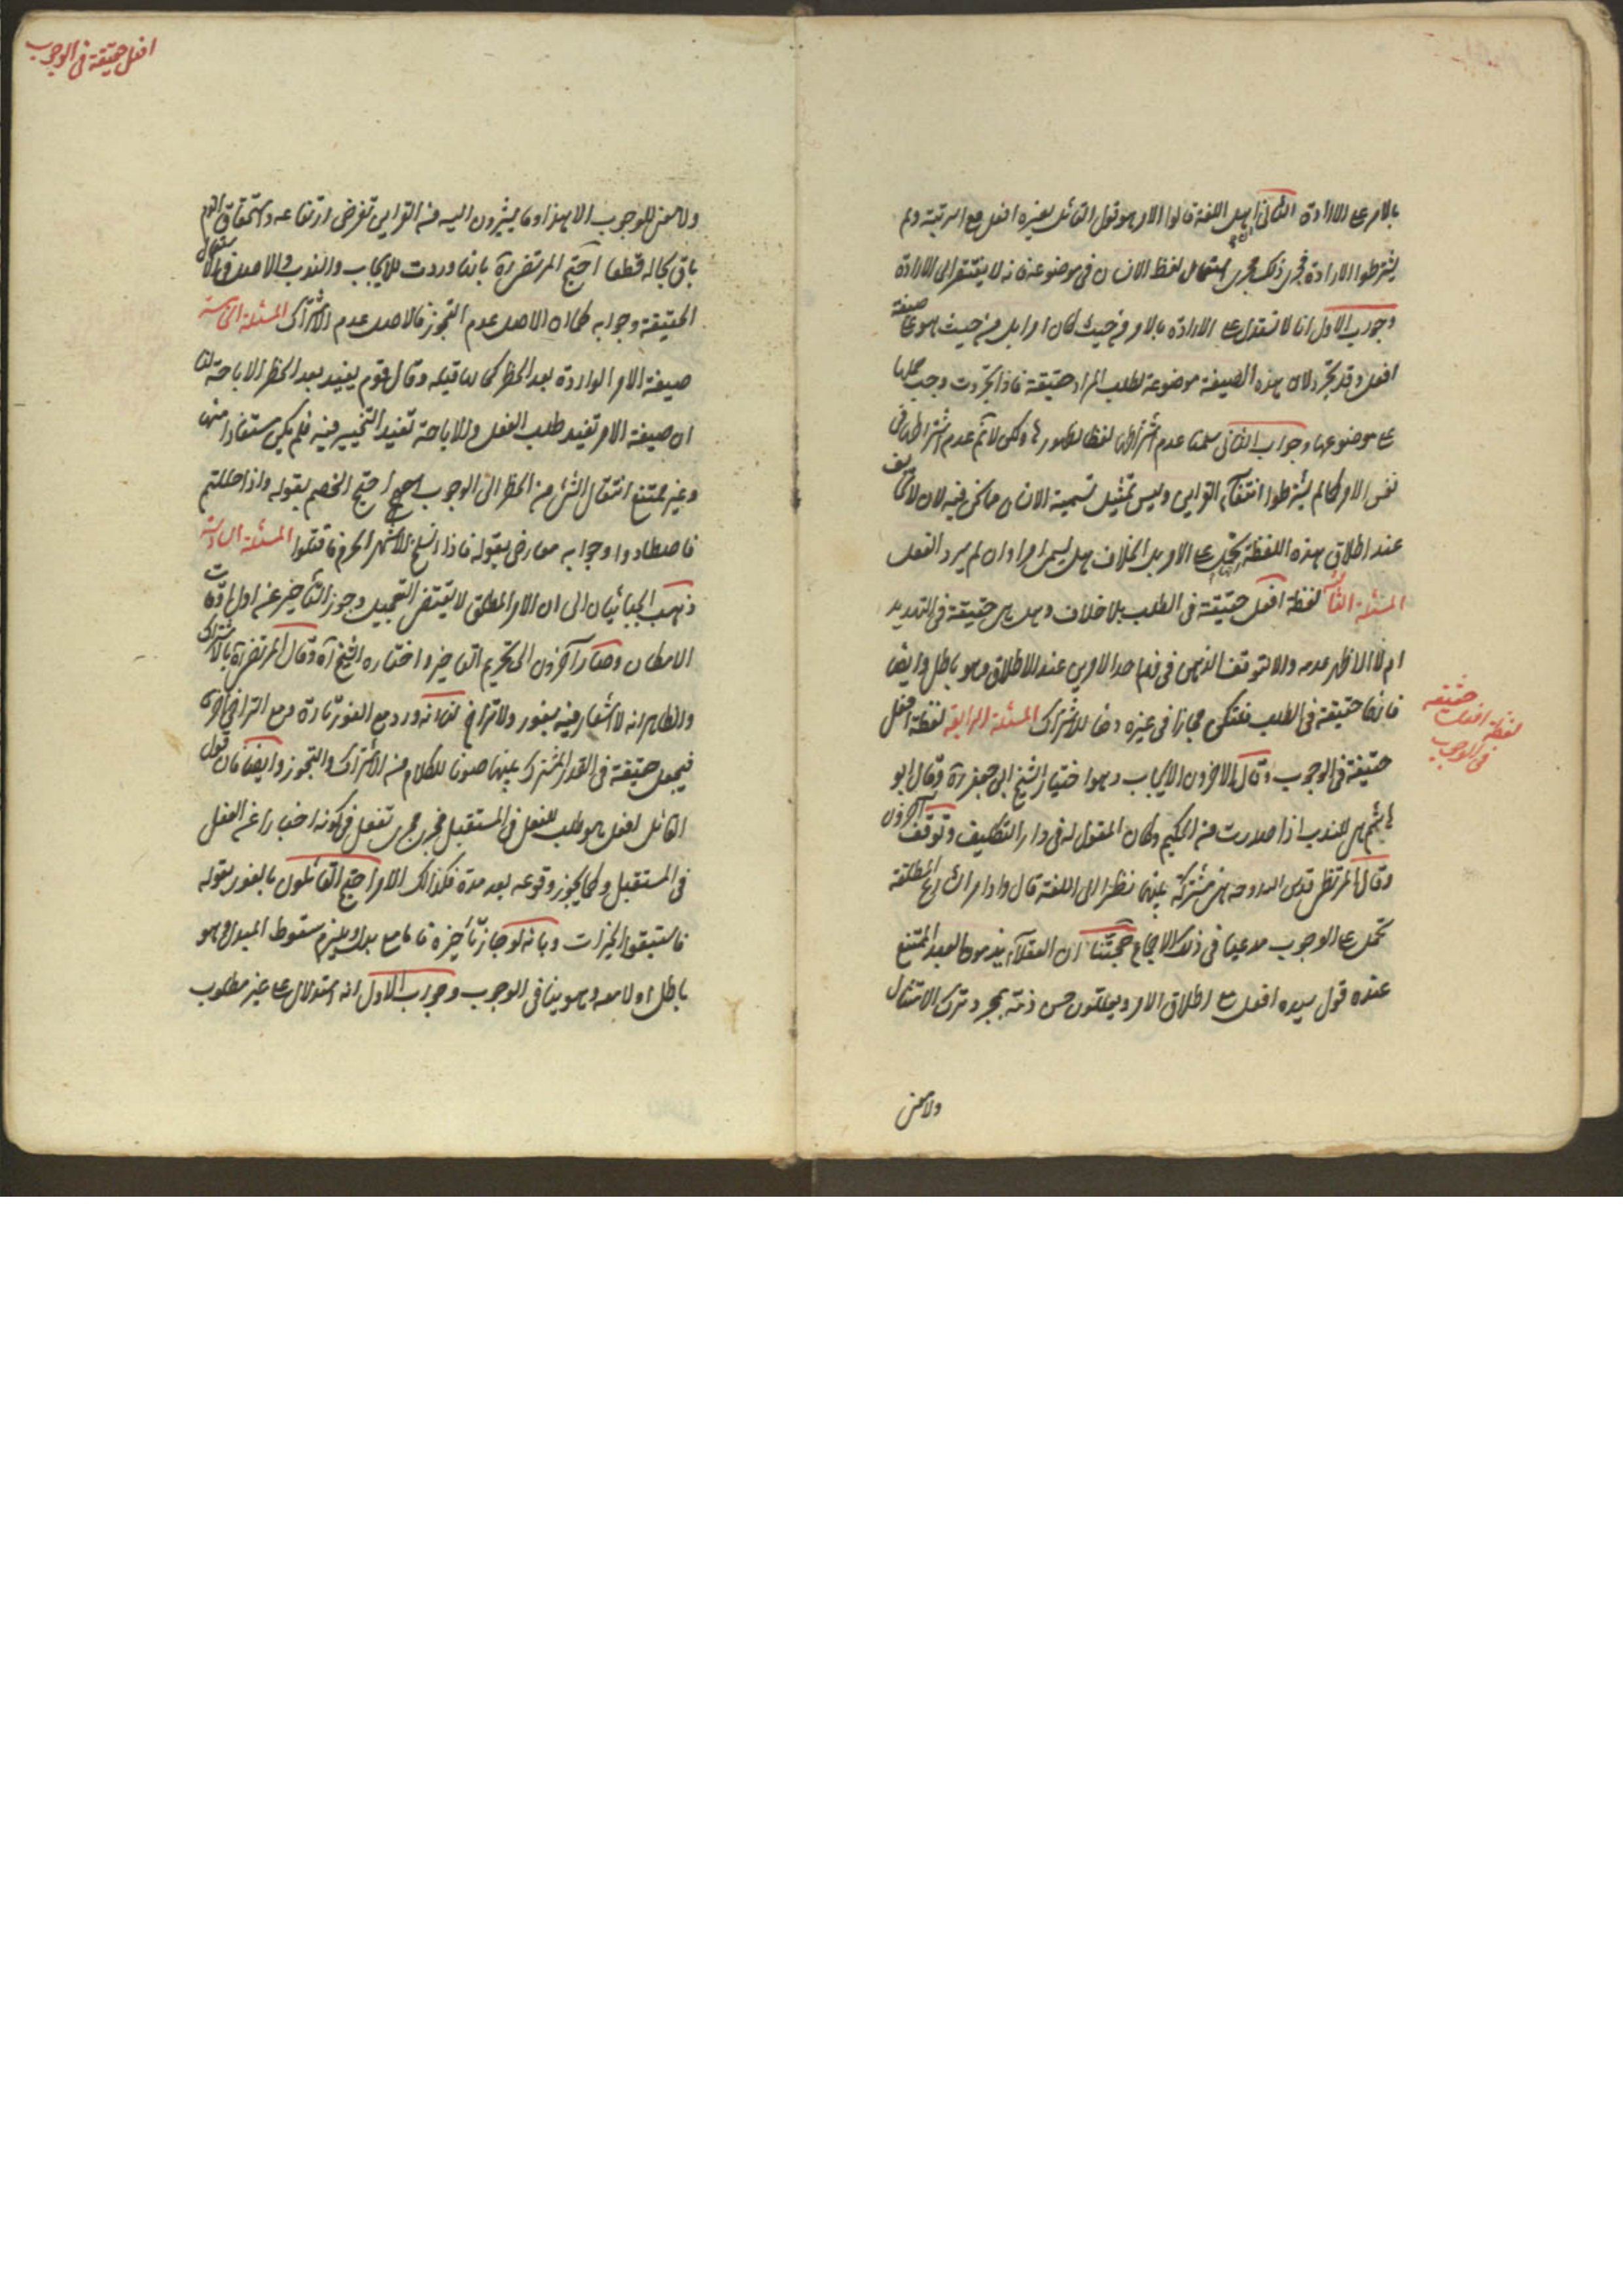 بالامر على الارادة الثانى اهل اللغة قالوا الامر هو قول القائل لغيره افعل مع الرتبة ولم
يشترطوا الارادة فجرى ذلك مجرى استعمال لفظ الانسان فى موضوعه فانه لا يفتقر الى الارادة
وجواب الاول انا لا نستدل على الارادة بالامر من حيث كان امرا بل من حيث هو على صيغة
افعل وقد تجرد لان هذه الصيغة موضوعة لطلب المراد حقيقة فاذا تجردت وجب حملها
على موضوعها وجواب الثانى سلمنا عدم اشتراطها لفظا لظهورها ولكن لا نم عدم اشتراطها فى
نفس الامر كما لم يشترطوا انتفاء القراين وليس تمثيل تسمية الانسان مما نحن فيه لانا لا نخالف
عند اطلاق هذه اللفظة تحمل على الامر بل الخلاف هل يسمى امرا وان لم يرد الفعل
المسئلة الثالثة لفظة افعل حقيقة فى الطلب بلا خلاف وهل هى حقيقة فى التهديد
ام لا الاظهر عدمه والا لتوقف الذهن فى فهم احد الامرين عند الاطلاق وهو باطل وايضا
فانها حقيقة فى الطلب فتكن مجازا فى غيره دفعا للاشتراك المسئلة الرابعة لفظة افعل
حقيقة فى الوجوب وقال الاخرون الايجاب وهو اختيار الشيخ ابى جعفر ره وقال ابو
هاشم هى للندب اذا صدرت من الحكيم وكان المقول له فى دار التكليف وتوقف آخرون
وقال المرتضى قدس الله روحه هى مشتركة بينهما نظرا الى اللغة قال واوامر الشارع المطلقة
تحمل على الوجوب مدعيا فى ذلك الاجماع حجتنا ان العقلاء يذمون العبد الممتنع
عنده قول سيده افعل مع اطلاق الامر ويعللون حسن ذمه بمجرد ترك الامتثال
ولا معنى
لفظة افعل حقيقة
فى الوجوب
افعل حقيقة فى الوجوب
ولا معنى للوجوب الا هذا وما يشيرون اليه من القراين نفرض ارتفاعه واستحقاق الذم
باق بحاله قطعا احتج المرتضى ره بانها وردت للايجاب والندب والاصل فى الاستعمال
الحقيقة وجوابه كما ان الاصل عدم التجوز فالاصل عدم الاشتراك المسئلة الخامسة
صيغة الامر الواردة بعد الحظر كما قبله وقال قوم يفيد بعد الحظر الاباحة لنا
ان صيغة الامر تفيد طلب الفعل والاباحة تفيد التخيير فيه فلم يكن مستفادا منها
وغير ممتنع انتقال الشئ من الحظر الى الوجوب احتج الخصم بقوله واذا حللتم
فاصطادوا وجوابه معارض بقوله فاذا انسلخ الاشهر الحرم فاقتلوا المسئلة السادسة
ذهب الجبائيان الى ان الامر المطلق لا يقتضى التعجيل وجوز التأخير عن اول اوقات
الامكان وصار آخرون الى تحريم التاخير واختاره الشيخ ره وقال المرتضى ره بالاشتراك
والظاهر انه لا اشعار فيه بفور ولا تراخ لنا انه ورد مع الفور تارة ومع التراخى اخرى
فيجعل حقيقة فى القدر المشترك بينهما صونا للكلام من الاشتراك والتجوز وايضا فان قول
القائل افعل هو طلب للفعل فى المستقبل فجرى مجرى تفعل فى كونه اخبارا عن الفعل
فى المستقبل وكما يجوز وقوعه بعد مدة فكذالك الامر احتج القائلون بالفور بقوله
فاستبقوا الخيرات وبانه لو جاز تأخيره فاما مع بدل ويلزم سقوط المبدل وهو
باطل او لا معه وهو ينافى الوجوب وجواب الاول انه استدلال على غير مطلوب